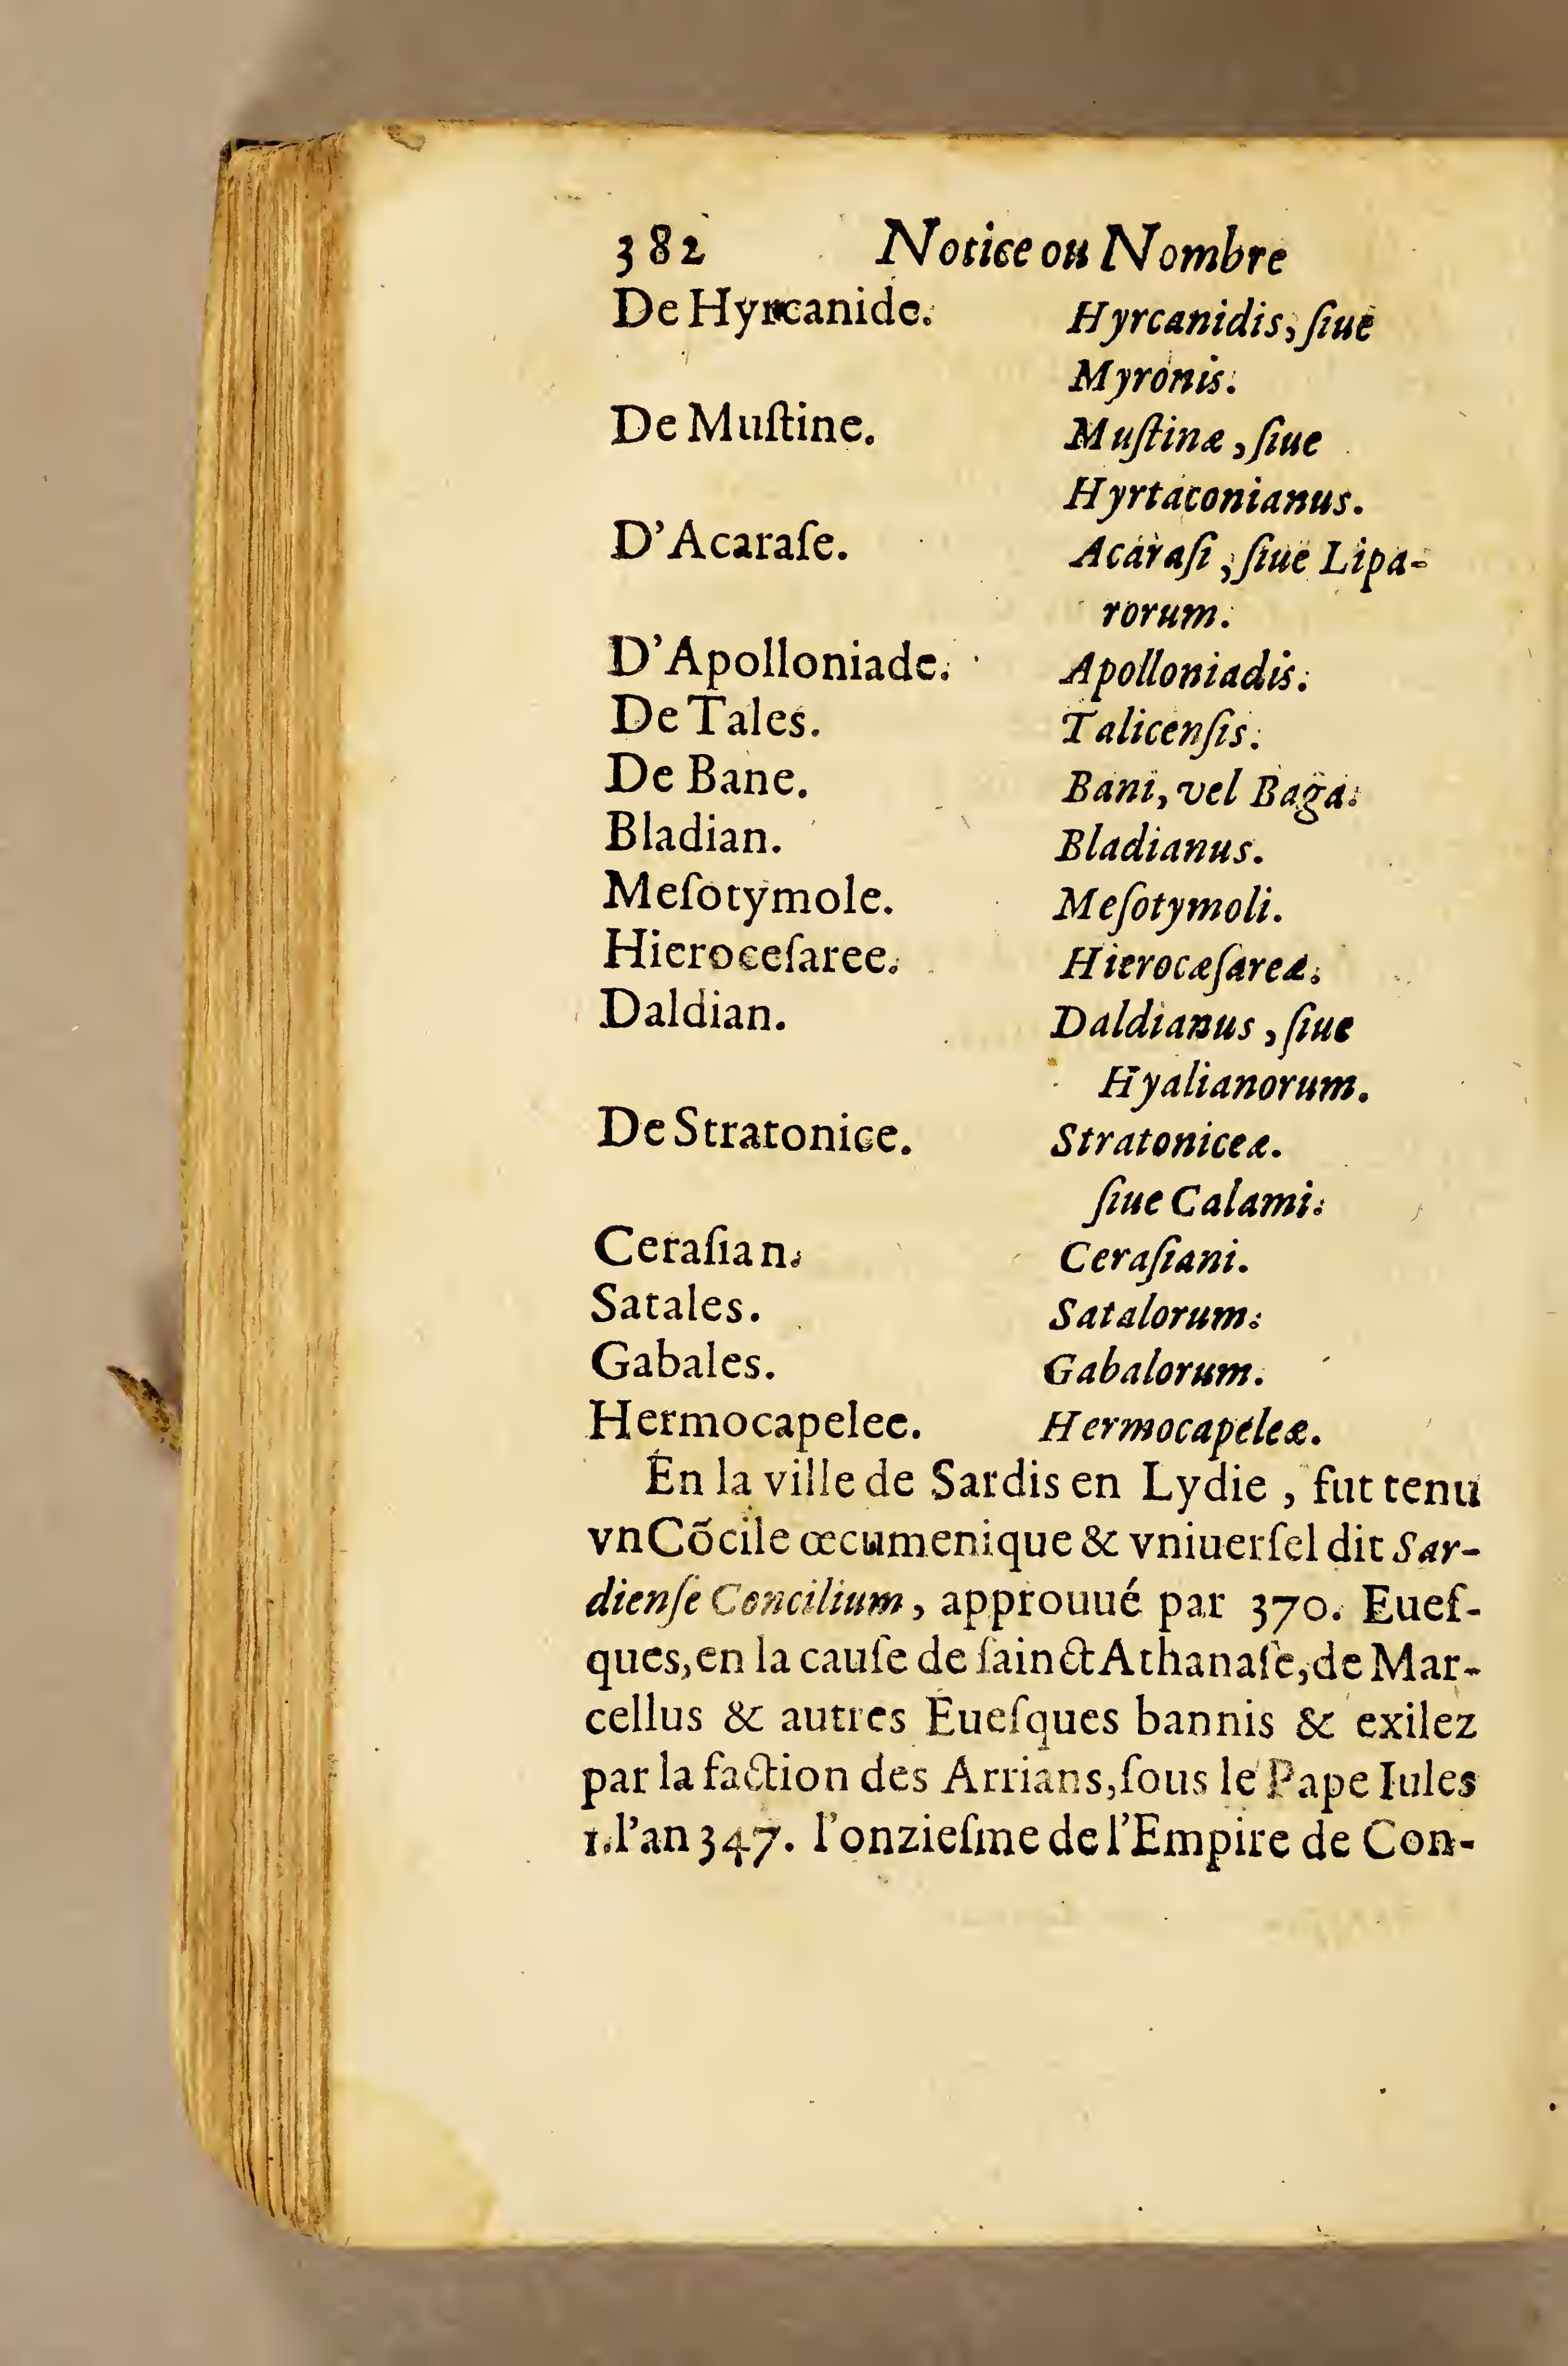 382 Notice ou Nombre
De Hyrcanide. Hyrcanidis, ſiue
Myronis.
De Muſtine. Muſtinæ, ſiue
Hyrtaconianus.
D'Acaraſe. Acaraſi, ſiue Lipa-
rorum.
D'Apolloniade. Apolloniadis.
De Tales. Talicenſis.
De Bane. Bani, vel Baga.
Bladian. Bladianus.
Meſotymole. Meſotymoli.
Hieroceſaree. Hierocæſareæ.
Daldian. Daldianus, ſiue
Hyalianorum.
De Stratonice. Stratoniceæ.
ſiue Calami.
Ceraſian. Ceraſiani.
Satales. Satalorum.
Gabales. Gabalorum.
Hermocapelee. Hermocapeleæ.
En la ville de Sardis en Lydie, fut tenu
vn Cõcile œcumenique & vniuerſel dit Sar-
dienſe Concilium, approuué par 370. Eueſ-
ques, en la cauſe de ſainct Athanaſe, de Mar-
cellus & autres Eueſques bannis & exilez
par la faction des Arrians, ſous le Pape Iules
1. l'an 347. l'onzieſme de l'Empire de Con-